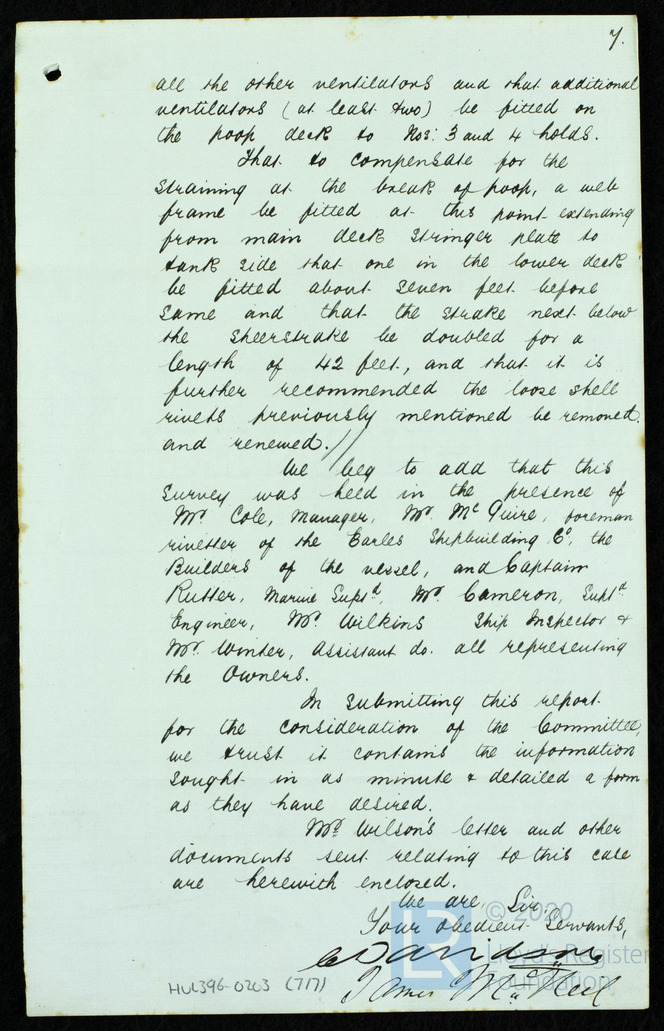 7.
all the other ventilators and that additional
ventilators (at least two) be fitted on
the poop deck to Nos: 3 and 4 holds.
That to compensate for the
straining at the break of poop, a web
frame be fitted at this point extending
from main deck stringer plate to
tank side that one in the lower deck
be fitted about seven feet before
same and that the strake next below
the sheerstrake be doubled for a
length of 42 feet, and that it is
further recommended the loose shell
rivets previously mentioned be removed
and renewed.//
We beg to add that this
survey was held in the presence of
Mr. Cole, Manager, Mr. McGuire, foreman
rivetter of the Earles Shipbuilding Co, the
Builders of the vessel, and Captain
Rutter, Marine Supt, Mr. Cameron, Supt
Engineer, Mr. Wilkins Ship Inspector &
Mr. Winter, Assistant do. all representing
the Owners.
In submitting this report
for the consideration of the Committee,
we trust it contains the information
sought in as minute & detailed a form
as they have desired.
Mr. Wilson's letter and other
documents sent relating to this case
are herewith enclosed.
We are, Sir,
© 2020
Your obedient Servants,
Davidson
LR Lloyd's Register
Foundation
James
HUL396-0203 (7/7)